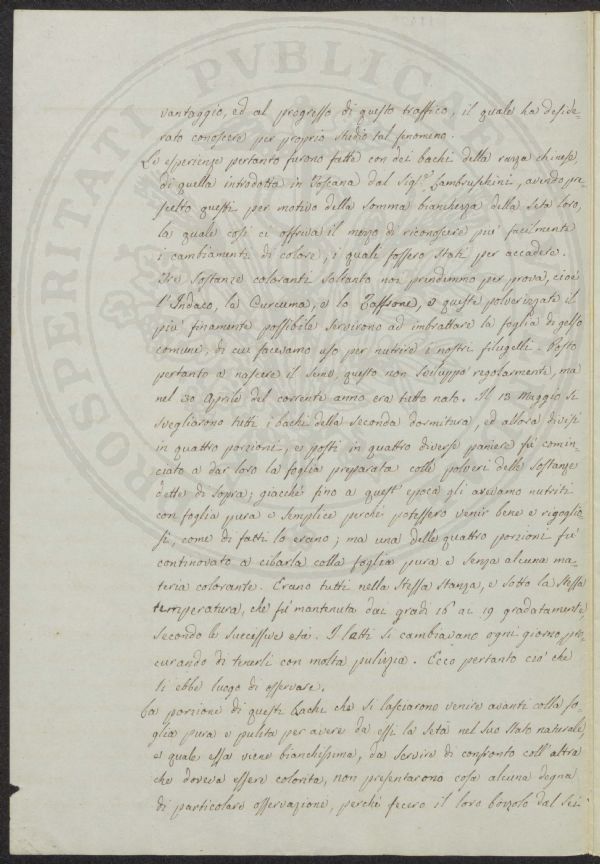 PROSPERITATI PVBLICAE
vantaggio, ed al progresso di questo traffico, il quale ha deside-
rato conoscere per proprio studio tal fenomeno.
Le esperienze pertanto furono fatte con dei bachi della razza chinese,
di quella introdotta in Toscana dal Sigr. Lambruschini, avendo pre-
scelto questi per motivo della somma bianchezza della seta loro,
la quale così ci offriva il mezzo di riconoscere più facilmente
i cambiamenti di colore, i quali fossero stati per accadere.
Tre sostanze coloranti soltanto noi prendemmo per prova, cioè
l'Indaco, la Curcuma, e lo Zaffrone, e queste polverizzate il
più finamente possibile servirono ad imbrattare la foglia di gelso
comune, di cui facevamo uso per nutrire i nostri filugelli. Posto
pertanto a nascere il seme, questo non sviluppò regolarmente, ma
nel 30 Aprile del corrente anno era tutto nato. Il 13 Maggio si
svegliarono tutti i bachi della seconda dormitura, ed allora divisi
in quattro porzioni, e posti in quattro diverse paniere fu comin-
ciato a dar loro la foglia preparata colle polveri delle sostanze
dette di sopra; giacchè fino a quest'epoca gli avevamo nutriti
con foglia pura e semplice perchè potessero venir bene e rigoglio-
si, come di fatti lo erano; ma una delle quattro porzioni fu
continovato a cibarla colla foglia pura e senza alcuna ma-
teria colorante. Erano tutti nella stessa stanza, e sotto la stessa
temperatura, che fu mantenuta dai gradi 16 ai 19 gradatamente,
secondo le successive età. I letti si cambiavano ogni giorno, pro-
curando di tenerli con molta pulizia. Ecco pertanto ciò che
si ebbe luogo di osservare.
La porzione di questi bachi che si lasciarono venire avanti colla fo-
glia pura e pulita per avere da essi la seta nel suo stato naturale,
e quale essa viene bianchissima, da servire di confronto coll'altra
che doveva essere colorita, non presentarono cosa alcuna degna
di particolare osservazione, perchè fecero il loro bozzolo dal sei